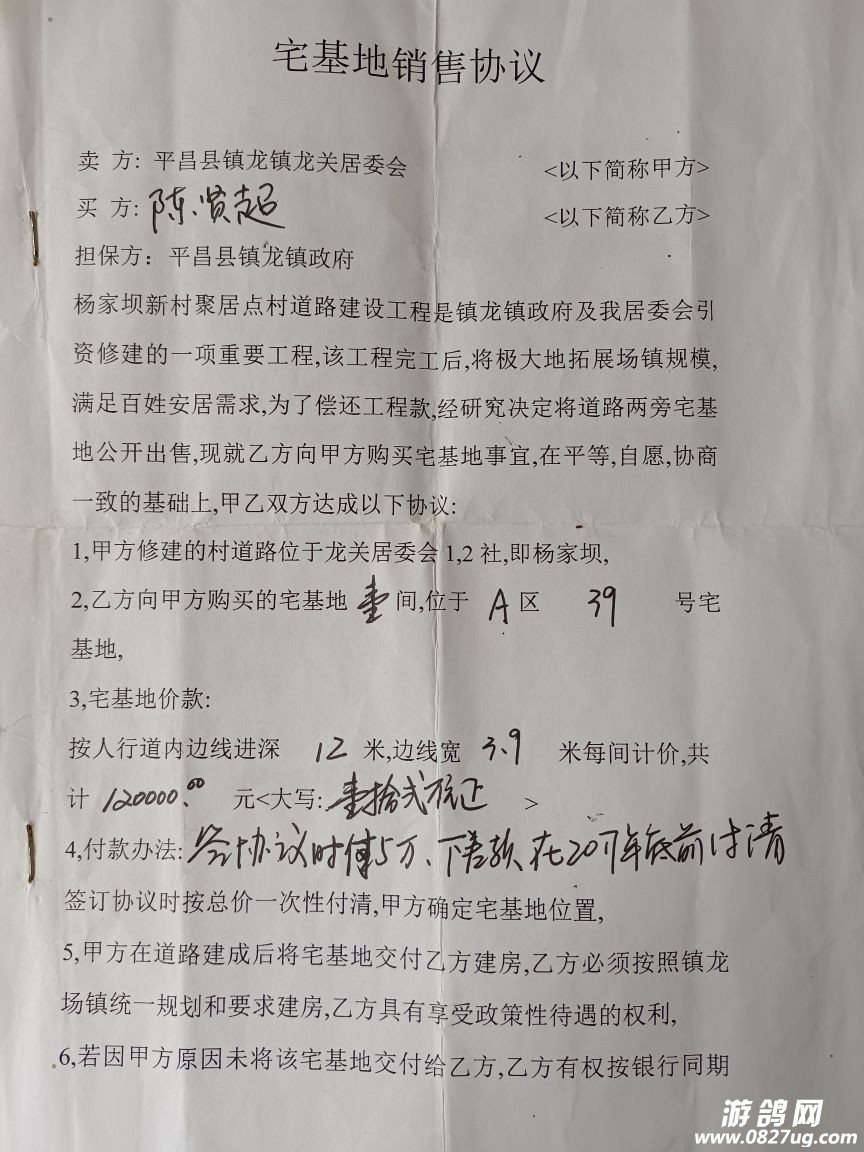 宅基地销售协议
卖 方: 平昌县镇龙镇龙关居委会 <以下简称甲方>
买 方: 陈贤超 <以下简称乙方>
担保方: 平昌县镇龙镇政府
杨家坝新村聚居点村道路建设工程是镇龙镇政府及我居委会引
资修建的一项重要工程,该工程完工后,将极大地拓展场镇规模,
满足百姓安居需求,为了偿还工程款,经研究决定将道路两旁宅基
地公开出售,现就乙方向甲方购买宅基地事宜,在平等,自愿,协商
一致的基础上,甲乙双方达成以下协议:
1,甲方修建的村道路位于龙关居委会1,2社,即杨家坝,
2,乙方向甲方购买的宅基地 壹 间,位于 A 区 39 号宅
基地,
3,宅基地价款:
按人行道内边线进深 12 米,边线宽 3.9 米每间计价,共
计 120000.00 元<大写: 壹拾弍万元正 >
4,付款办法: 签协议时付5万、下差款在2017年底前付清
签订协议时按总价一次性付清,甲方确定宅基地位置,
5,甲方在道路建成后将宅基地交付乙方建房,乙方必须按照镇龙
场镇统一规划和要求建房,乙方具有享受政策性待遇的权利,
6,若因甲方原因未将该宅基地交付给乙方,乙方有权按银行同期
游鸽网
www.0827ug.com